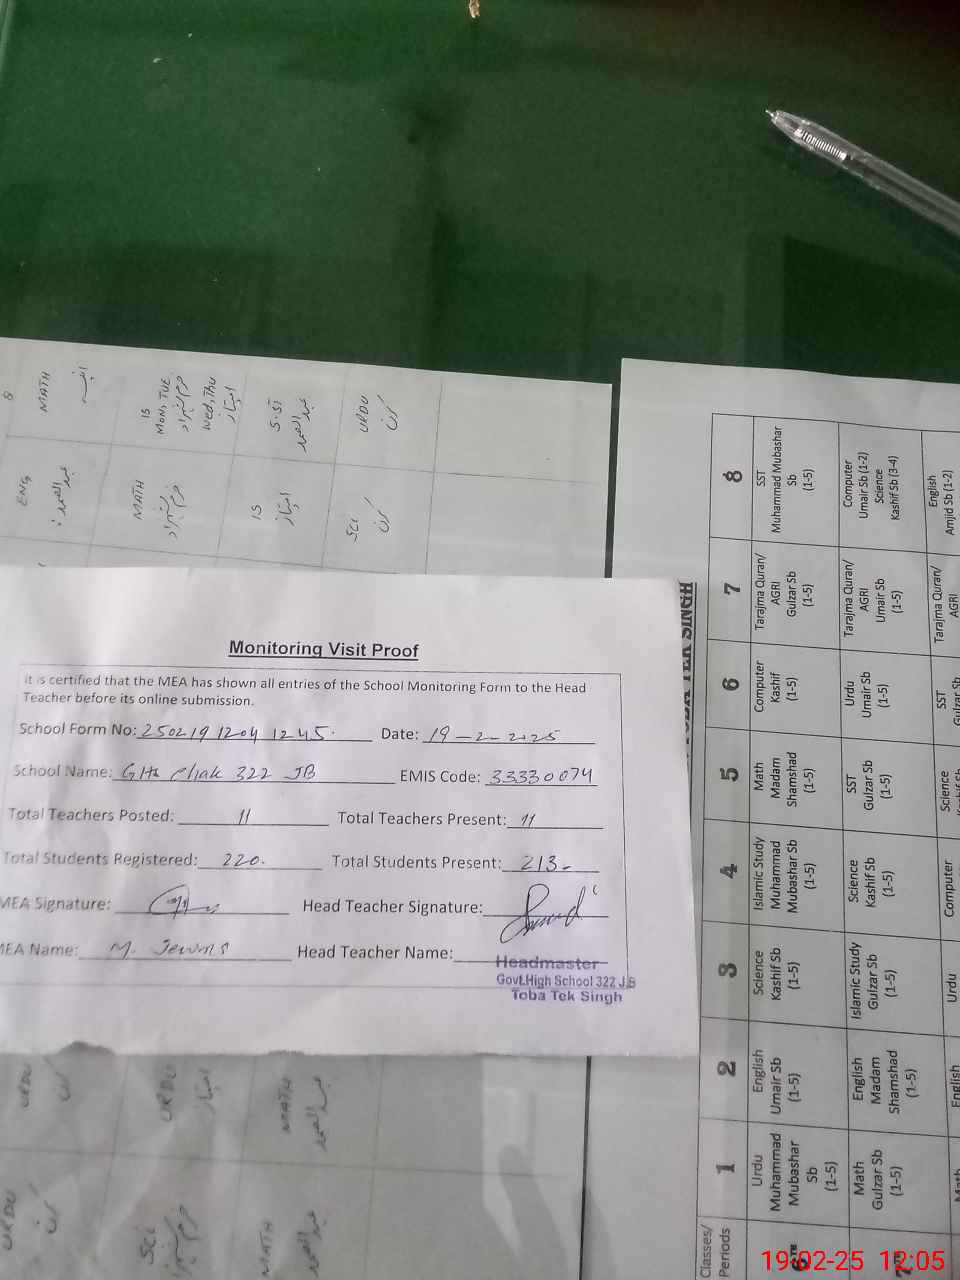 Monitoring Visit Proof
it is certified that the MEA has shown all entries of the School Monitoring Form to the Head
Teacher before its online submission.
School Form No: 250219 1204 1245. Date: 19-2-2025
School Name: GHS Chak 322 JB EMIS Code: 33330074
Total Teachers Posted: 11 Total Teachers Present: 11
Total Students Registered: 220. Total Students Present: 213-
MEA Signature: Head Teacher Signature:
MEA Name: M. Head Teacher Name:
Headmaster
Govt.High School 322 J.B
Toba Tek Singh
8
MATH
IS
MON, TUE
Wed, Thu
S.ST
عبدالصمد
URDU
کرن
ENG
عبدالصمد
MATH
IS
SCI
کرن
URDU
URDU
MATH
عبدالصمد
URDU
کرن
SCI
MATH
عبدالصمد
TEK SINGH
Classes/
Periods
1
2
3
4
5
6
7
8
6TH
Urdu
Muhammad
Mubashar
Sb
(1-5)
English
Umair Sb
(1-5)
Science
Kashif Sb
(1-5)
Islamic Study
Muhammad
Mubashar Sb
(1-5)
Math
Madam
Shamshad
(1-5)
Computer
Kashif
(1-5)
Tarajma Quran/
AGRI
Gulzar Sb
(1-5)
SST
Muhammad Mubashar
Sb
(1-5)
7TH
Math
Gulzar Sb
(1-5)
English
Madam
Shamshad
(1-5)
Islamic Study
Gulzar Sb
(1-5)
Science
Kashif Sb
(1-5)
SST
Gulzar Sb
(1-5)
Urdu
Umair Sb
(1-5)
Tarajma Quran/
AGRI
Umair Sb
(1-5)
Computer
Umair Sb (1-2)
Science
Kashif Sb (3-4)
Math
English
Urdu
Computer
Science
SST
Gulzar Sb
Tarajma Quran/
AGRI
English
Amjid Sb (1-2)
19-02-25 12:05